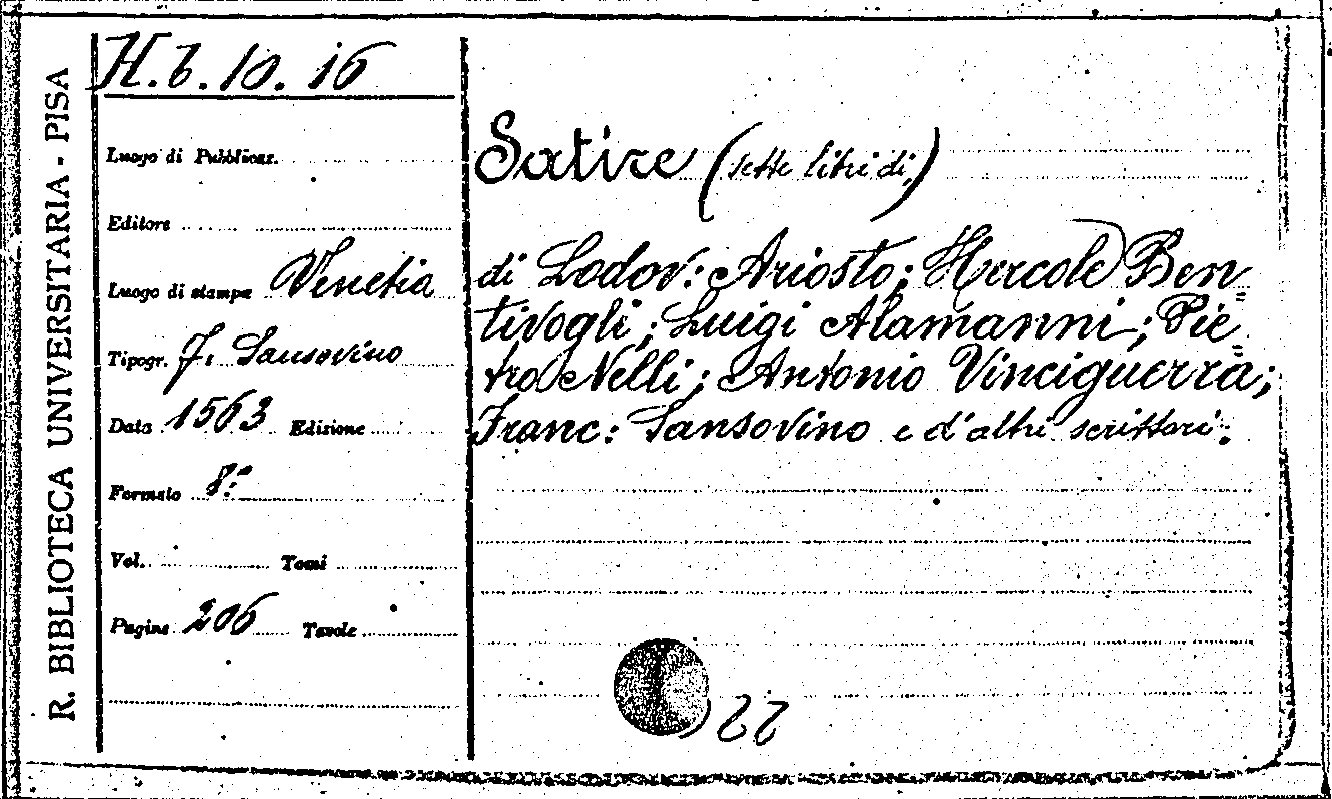 R. BIBLIOTECA UNIVERSITARIA - PISA
H. b. 10. 16
Luogo di Pubblicaz.
Editore
Luogo di stampa Venetia
Tipogr. F. Sansovino
Data 1563 Edizione
Formato 8.°
Vol. Tomi
Pagine 206 Tavole
Satire (sette libri di)
di Lodov: Ariosto; Hercole Ben=
tivogli; Luigi Alamanni; Pie=
tro Nelli; Antonio Vinciguerra;
Franc: Sansovino e d'altri scrittori.
22